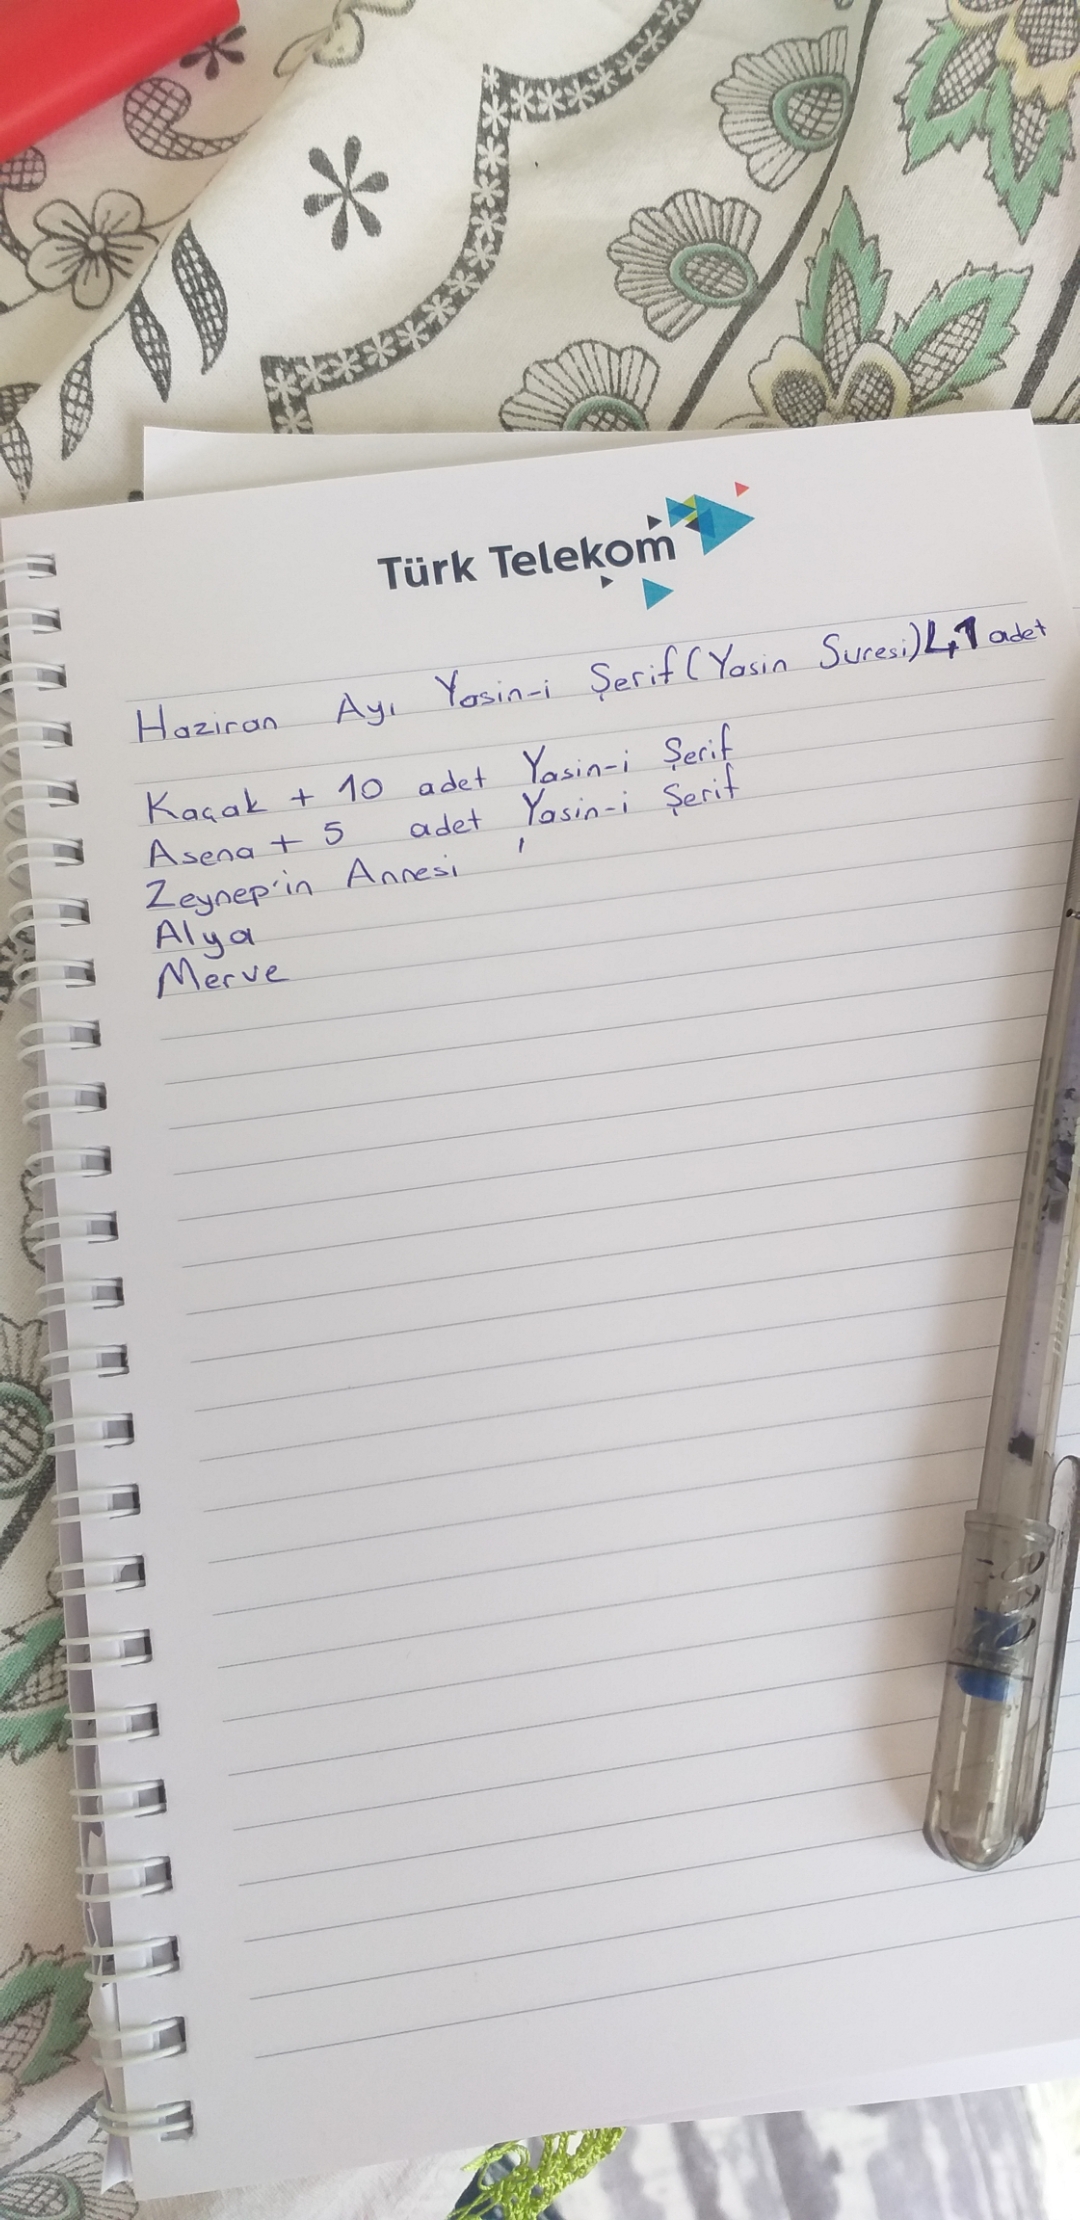 Türk Telekom
Haziran Ayı Yasin-i Şerif (Yasin Suresi) 41 adet
Kaçak + 10 adet Yasin-i Şerif
Asena + 5 adet Yasin-i Şerif
Zeynep'in Annesi
Alya
Merve